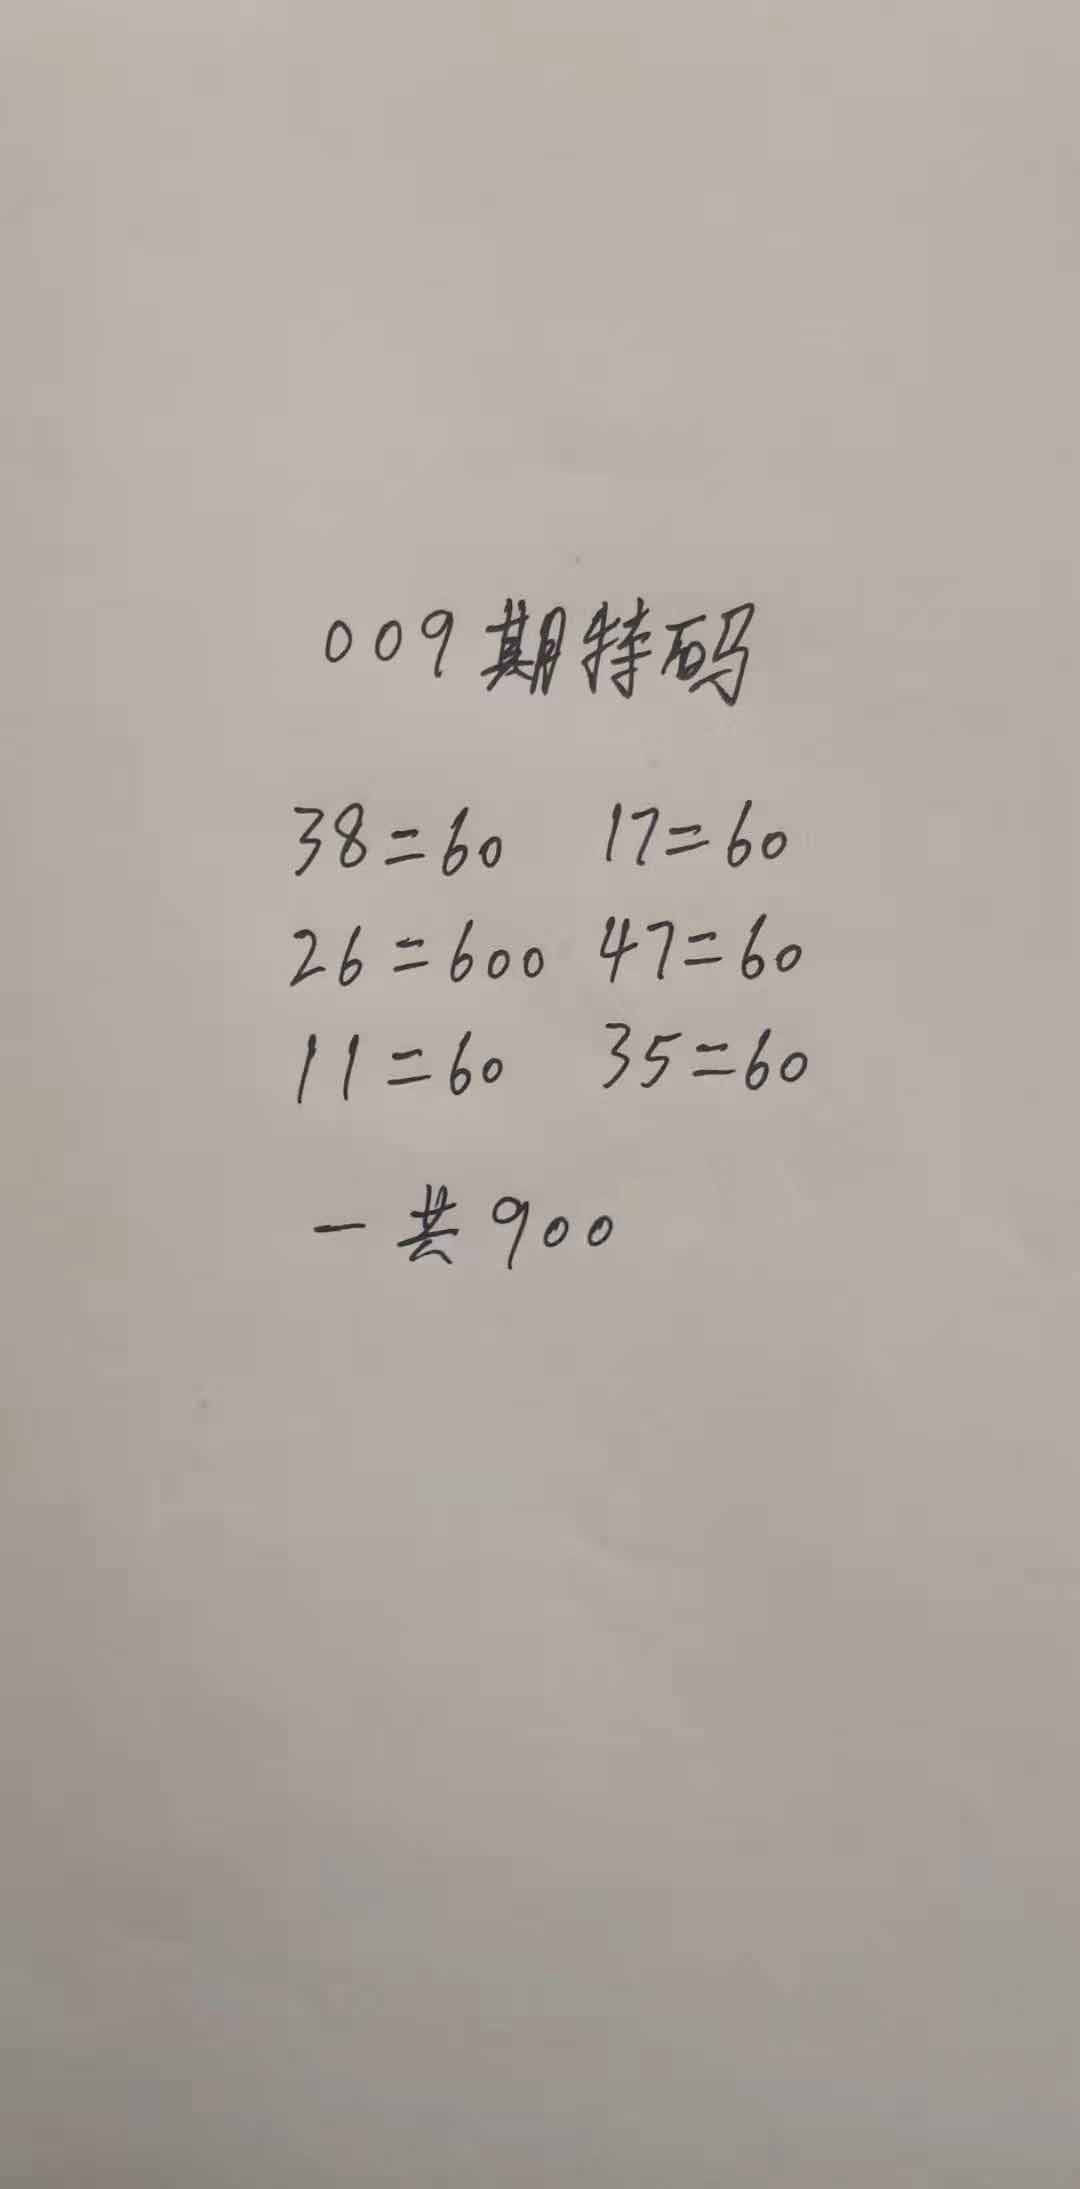 009期特码
38=60 17=60
26=600 47=60
11=60 35=60
一共900